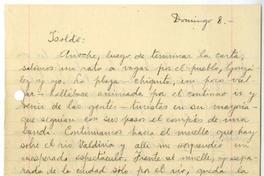 Domingo 8.-
Isolda:
Anoche, luego de terminar la carta,
salimos un rato a vagar por el pueblo, Gonzá-
lez y yo. La plaza - chiquita, un poco vul-
gar - hallábase animada por el continuo ir y
venir de las gentes - turistas en su mayoría -
que seguían con sus pasos el compás de una
banda. Continuamos hacia el muelle, que hay
sobre el río Valdivia y allí me sorprendió un
inesperado espectáculo. Frente al muelle, y sepa-
rada de la ciudad sólo por el río, queda la